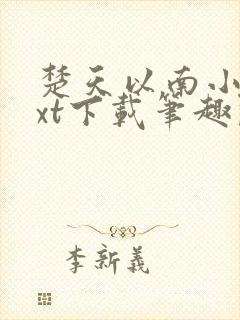 楚天以南小
xt下载笔趣
李新义